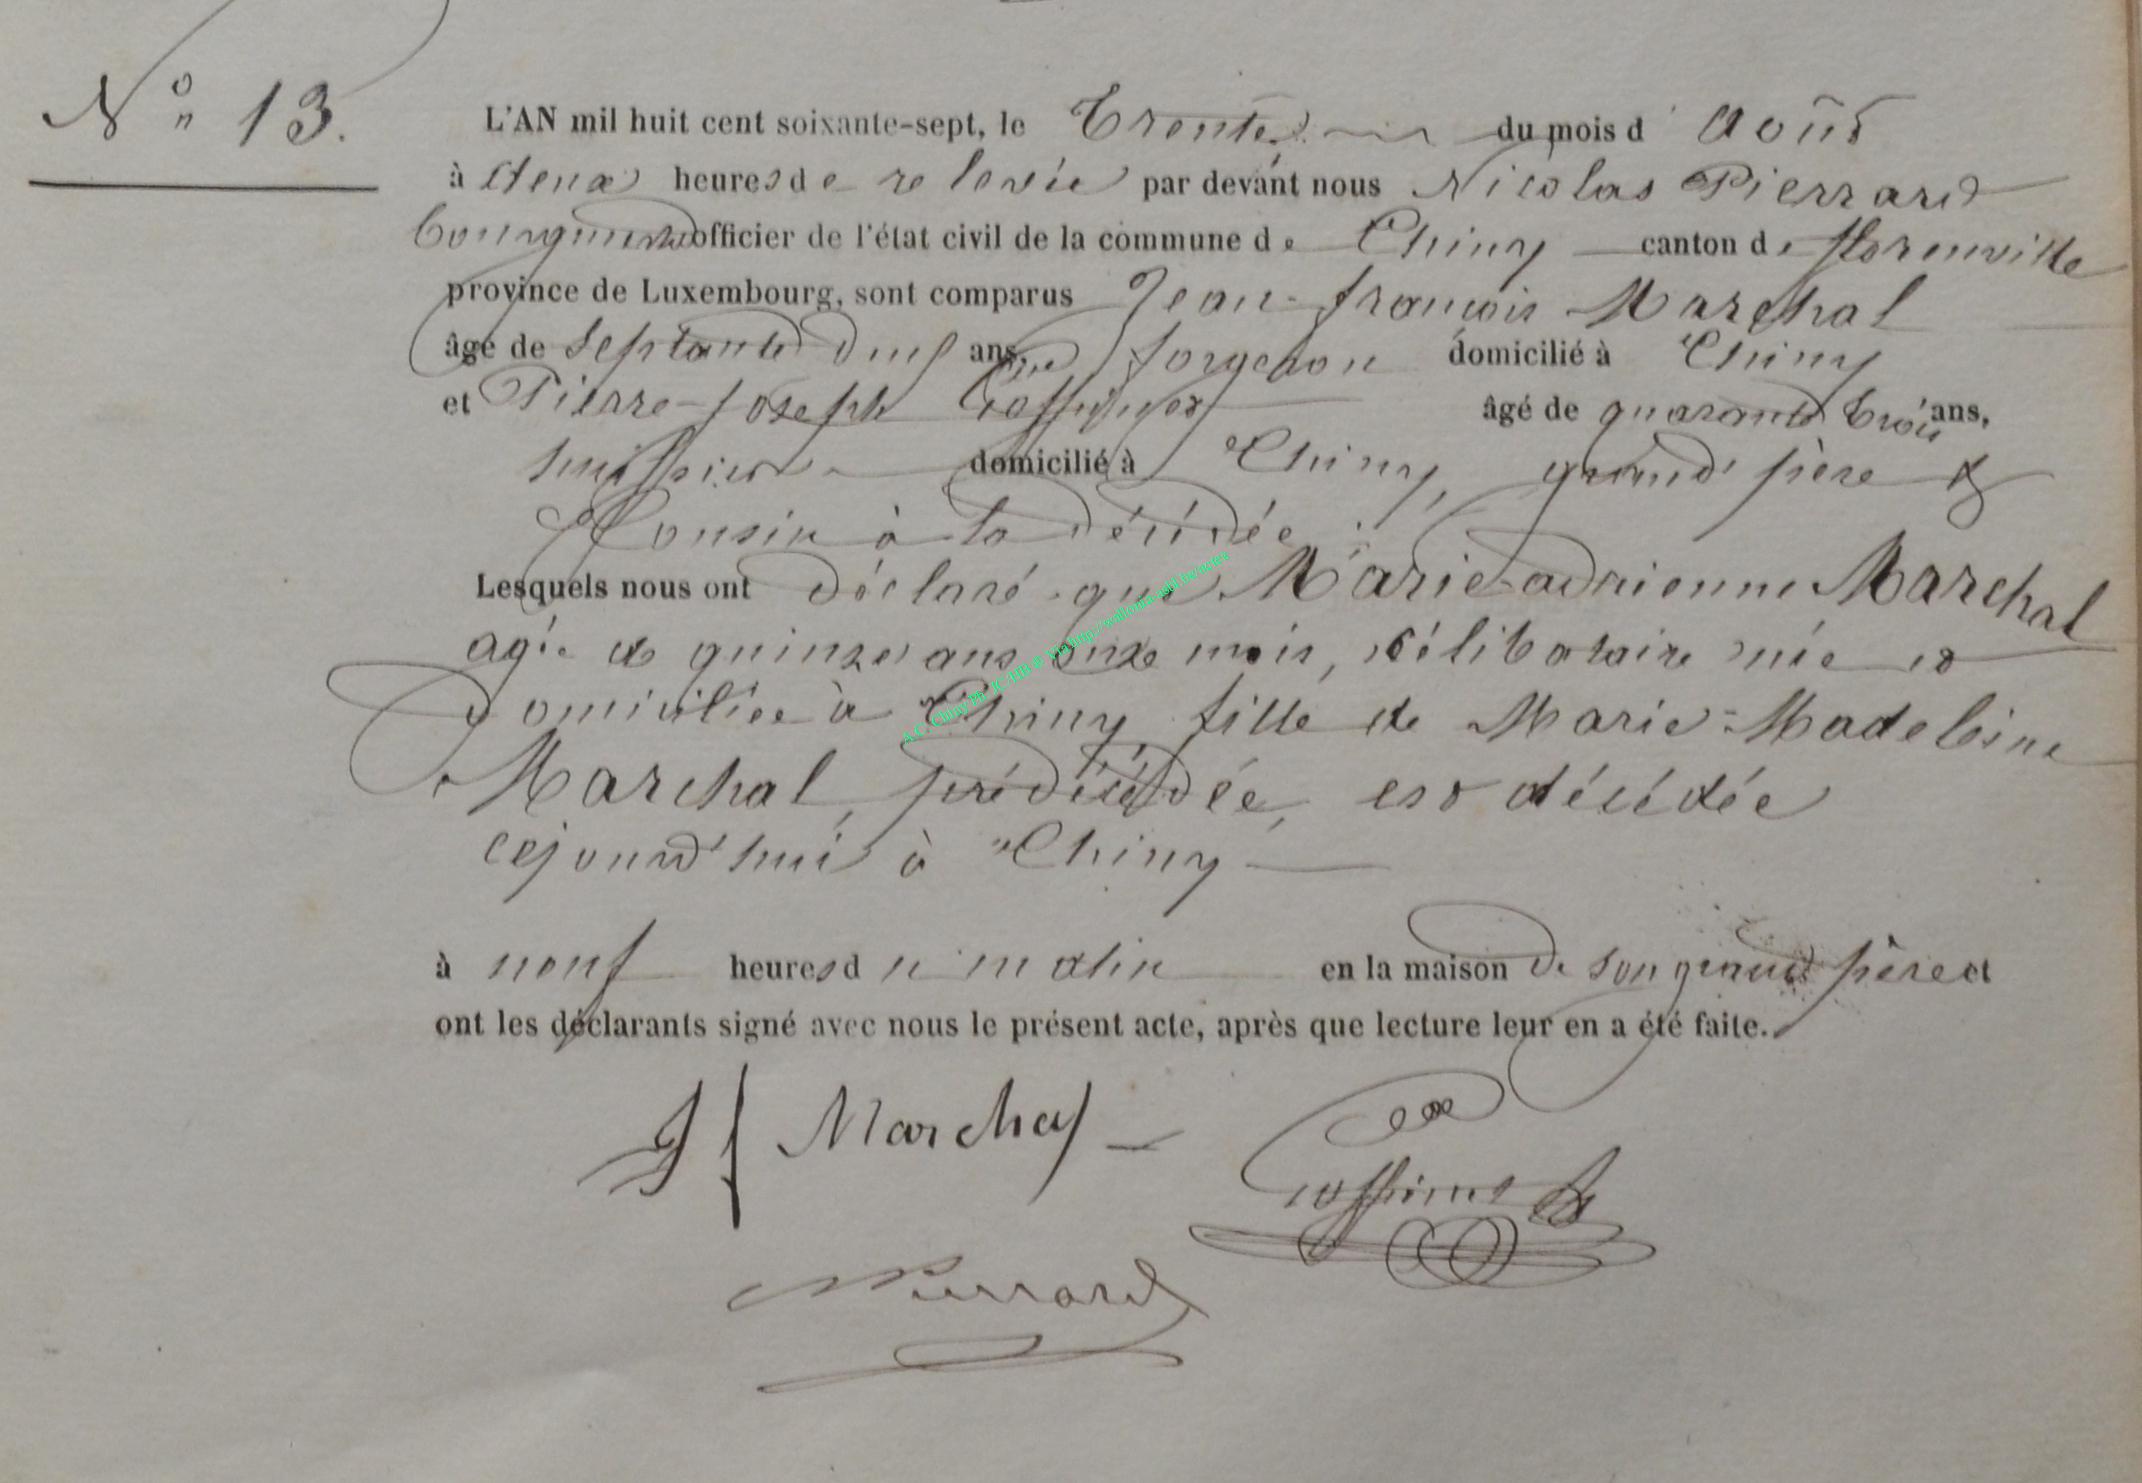 N° 13.
L'AN mil huit cent soixante-sept, le Trente du mois d' Août
à deux heures de relevée par devant nous Nicolas Pierrard
bourgmestre officier de l'état civil de la commune de Chiny canton de florenville
province de Luxembourg, sont comparus Jean-françois Marchal
âgé de septante neuf ans, forgeron domicilié à Chiny
et Pierre-Joseph âgé de quarante trois ans,
huissier domicilié à Chiny, grand père &
Cousin à la décédée :
Lesquels nous ont déclaré que Marie-adrienne Marchal
agée de quinze ans onze mois, célibataire née et
domiciliée à Chiny, fille de Marie-Madeleine
Marchal, prédécédée, est décédée
cejourd'hui à Chiny
à neuf heures du matin en la maison de son grand père et
ont les déclarants signé avec nous le présent acte, après que lecture leur en a été faite.
J f Marchal
NPierrard